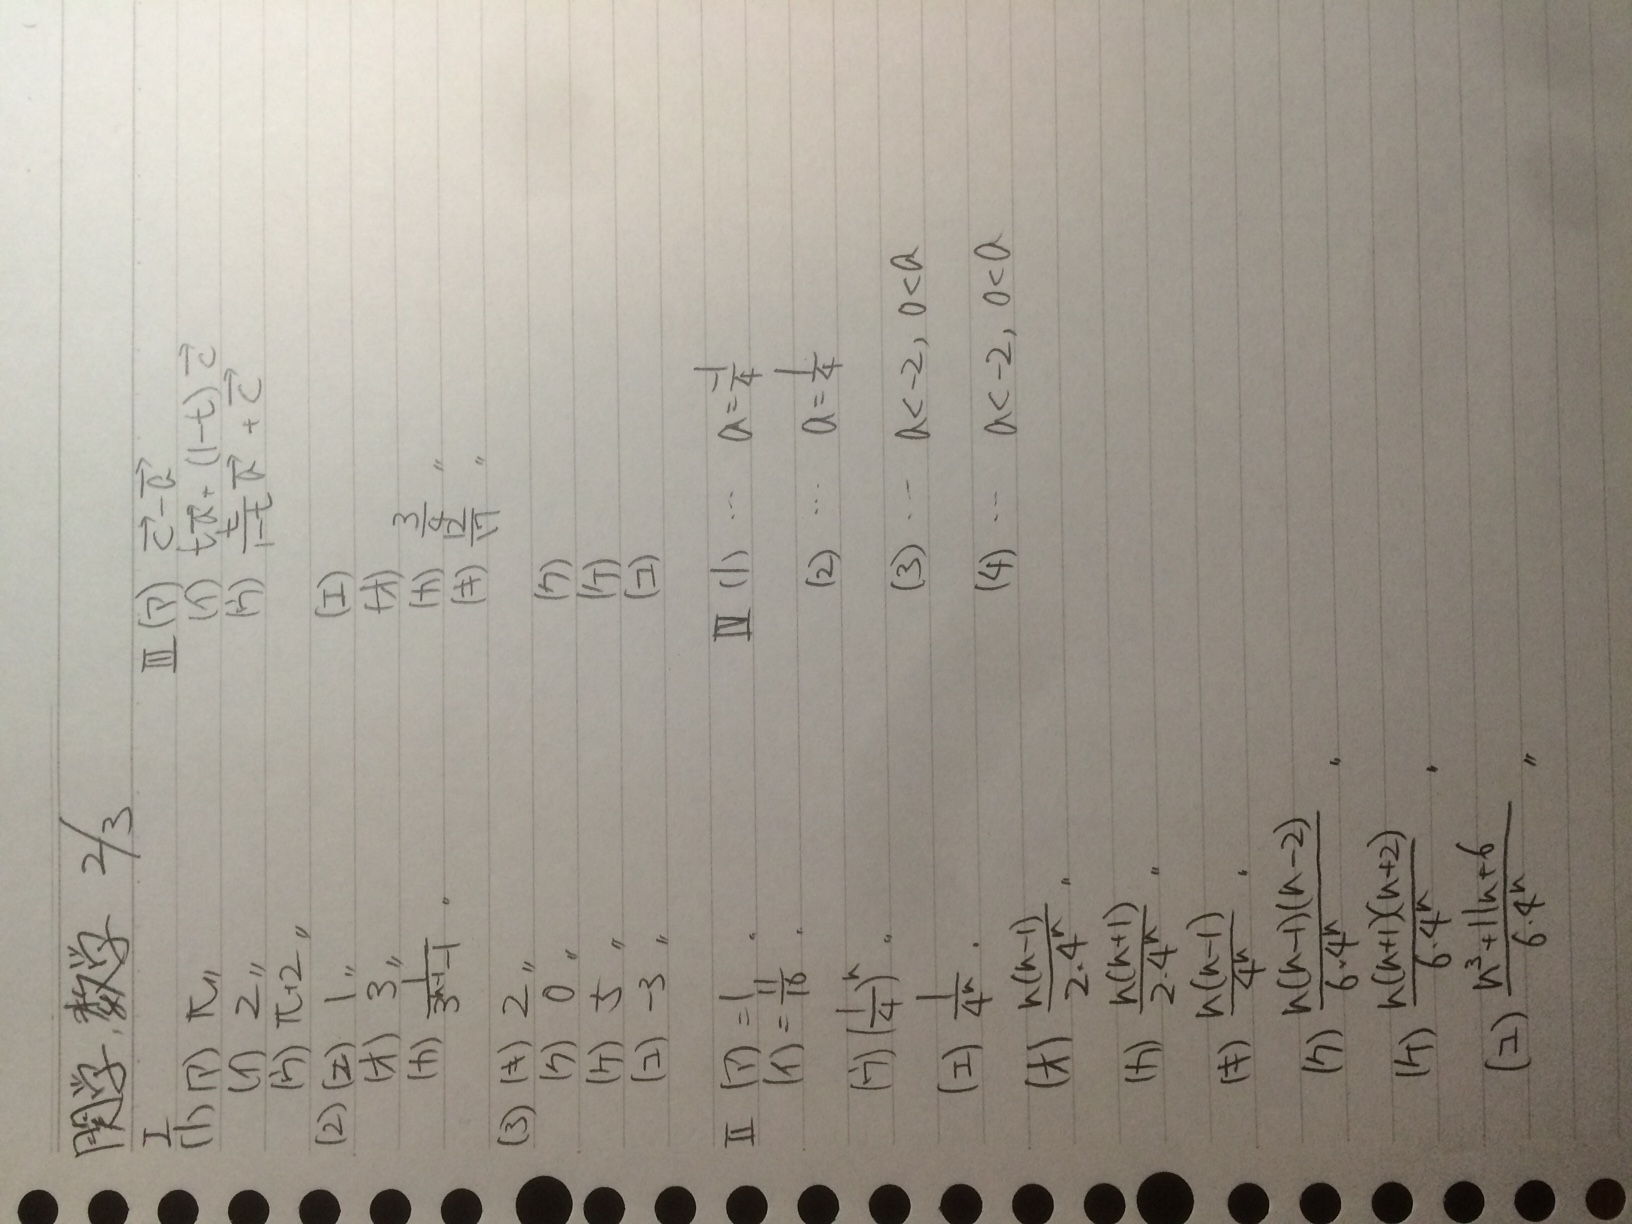 関学,数学 2/3
I
(1) (ア) π〃
(イ) 2〃
(ウ) π+2〃
(2) (エ) 1〃
(オ) 3〃
(カ) 1/(3^{n+1}-1)〃
(3) (キ) 2〃
(ク) 0〃
(ケ) 5〃
(コ) -3〃
II (ア) =1〃
(イ) =11/16〃
(ウ) (1/4)^n〃
(エ) 1/4^n〃
(オ) n(n-1)/2・4^n〃
(カ) n(n+1)/2・4^n〃
(キ) n(n-1)/4^n〃
(ク) n(n-1)(n-2)/6・4^n〃
(ケ) n(n+1)(n+2)/6・4^n〃
(コ) n^3+11n+6/6・4^n〃
III (ア) c→-a→
(イ) ta→+(1-t)c→
(ウ) t/(1-t) a→+c→
(エ)
(オ)
(カ) 〃
(キ) 12/17〃
(ク)
(ケ)
(コ)
IV (1) … a=-1/4
(2) … a=1/4
(3) … a<-2, 0<a
(4) … a<-2, 0<a